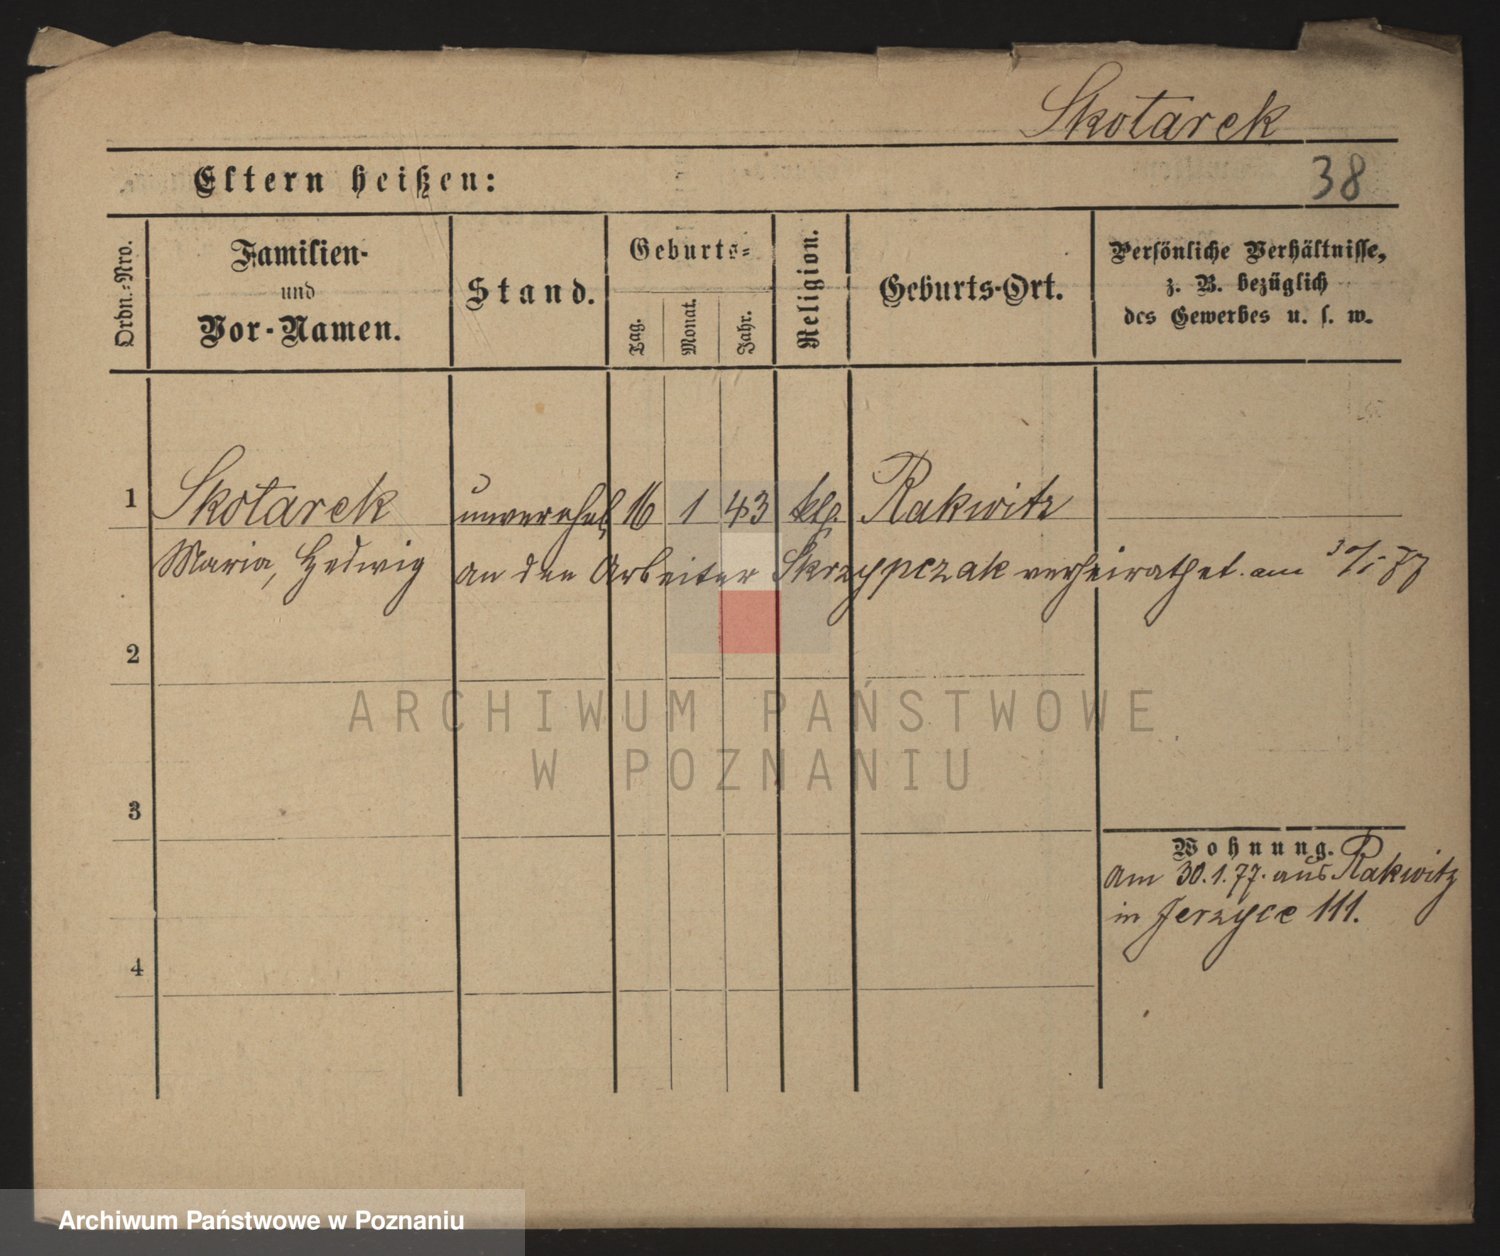 Skotarek
Eltern heißen:
38
Ordn.-Nro.
Familien-
und
Vor-Namen.
Stand.
Geburts-
Tag.
Monat.
Jahr.
Religion.
Geburts-Ort.
Persönliche Verhältnisse,
z. B. bezüglich
des Gewerbes u. s. w.
1 Skotarek unverehel 16 1 43 Rakwitz
Maria, Hedwig an den Arbeiter Skrzypczak verheirathet am
2
ARCHIWUM PAŃSTWOWE
W POZNANIU
3
Wohnung.
am 30.1.77. aus Rakwitz
in Jerzyce 111.
4
Archiwum Państwowe w Poznaniu